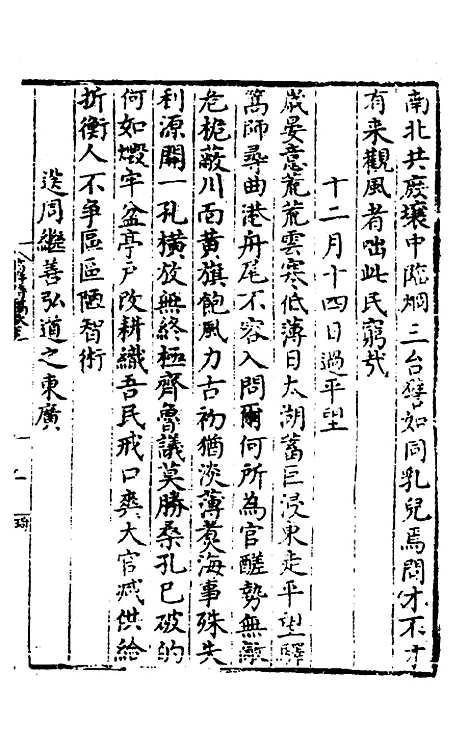 南北共廢壤中臨烟二台譬如同乳兒焉問才不才
有来觀風者咄此民窮㢤
十二月十四日過平望
歳晏意荒荒雲寒低薄日太湖蓄巨浸東走平望驛
篙師尋曲港舟尾不容入問爾何所為官醝勢無敵
危桅蔽川面黄旗飽風力古初猶淡薄煑海事殊失
利源開一孔橫放無終極齊魯議莫勝桑孔已破的
何如燬牢盆亭户改耕織吾民戒口爽大官减供給
折衡人不争區區陋智術
送周繼善弘道之東廣